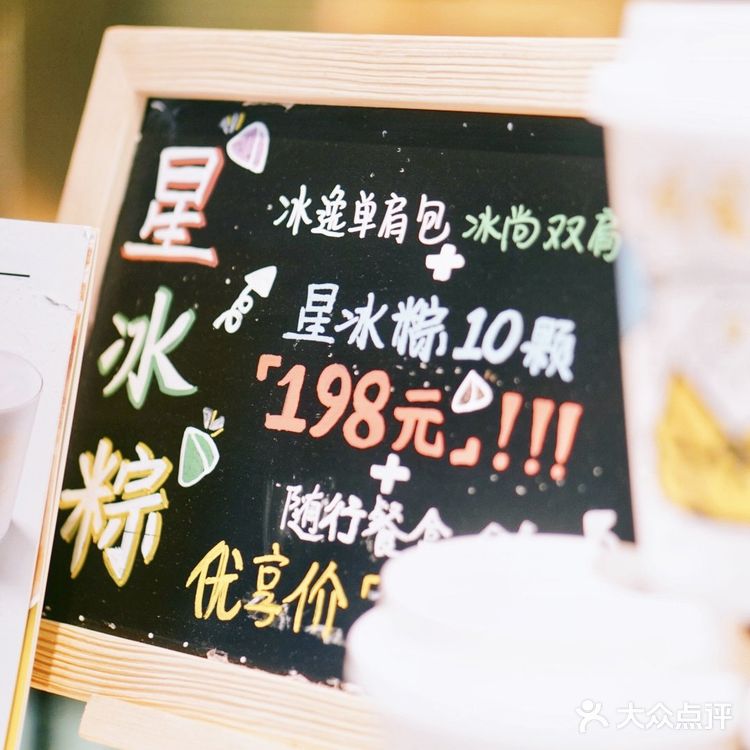 星冰粽
冰逸单肩包 冰尚双肩
+
星冰粽10颗
「198元」!!!
+
随行餐盒
优享价「
大众点评